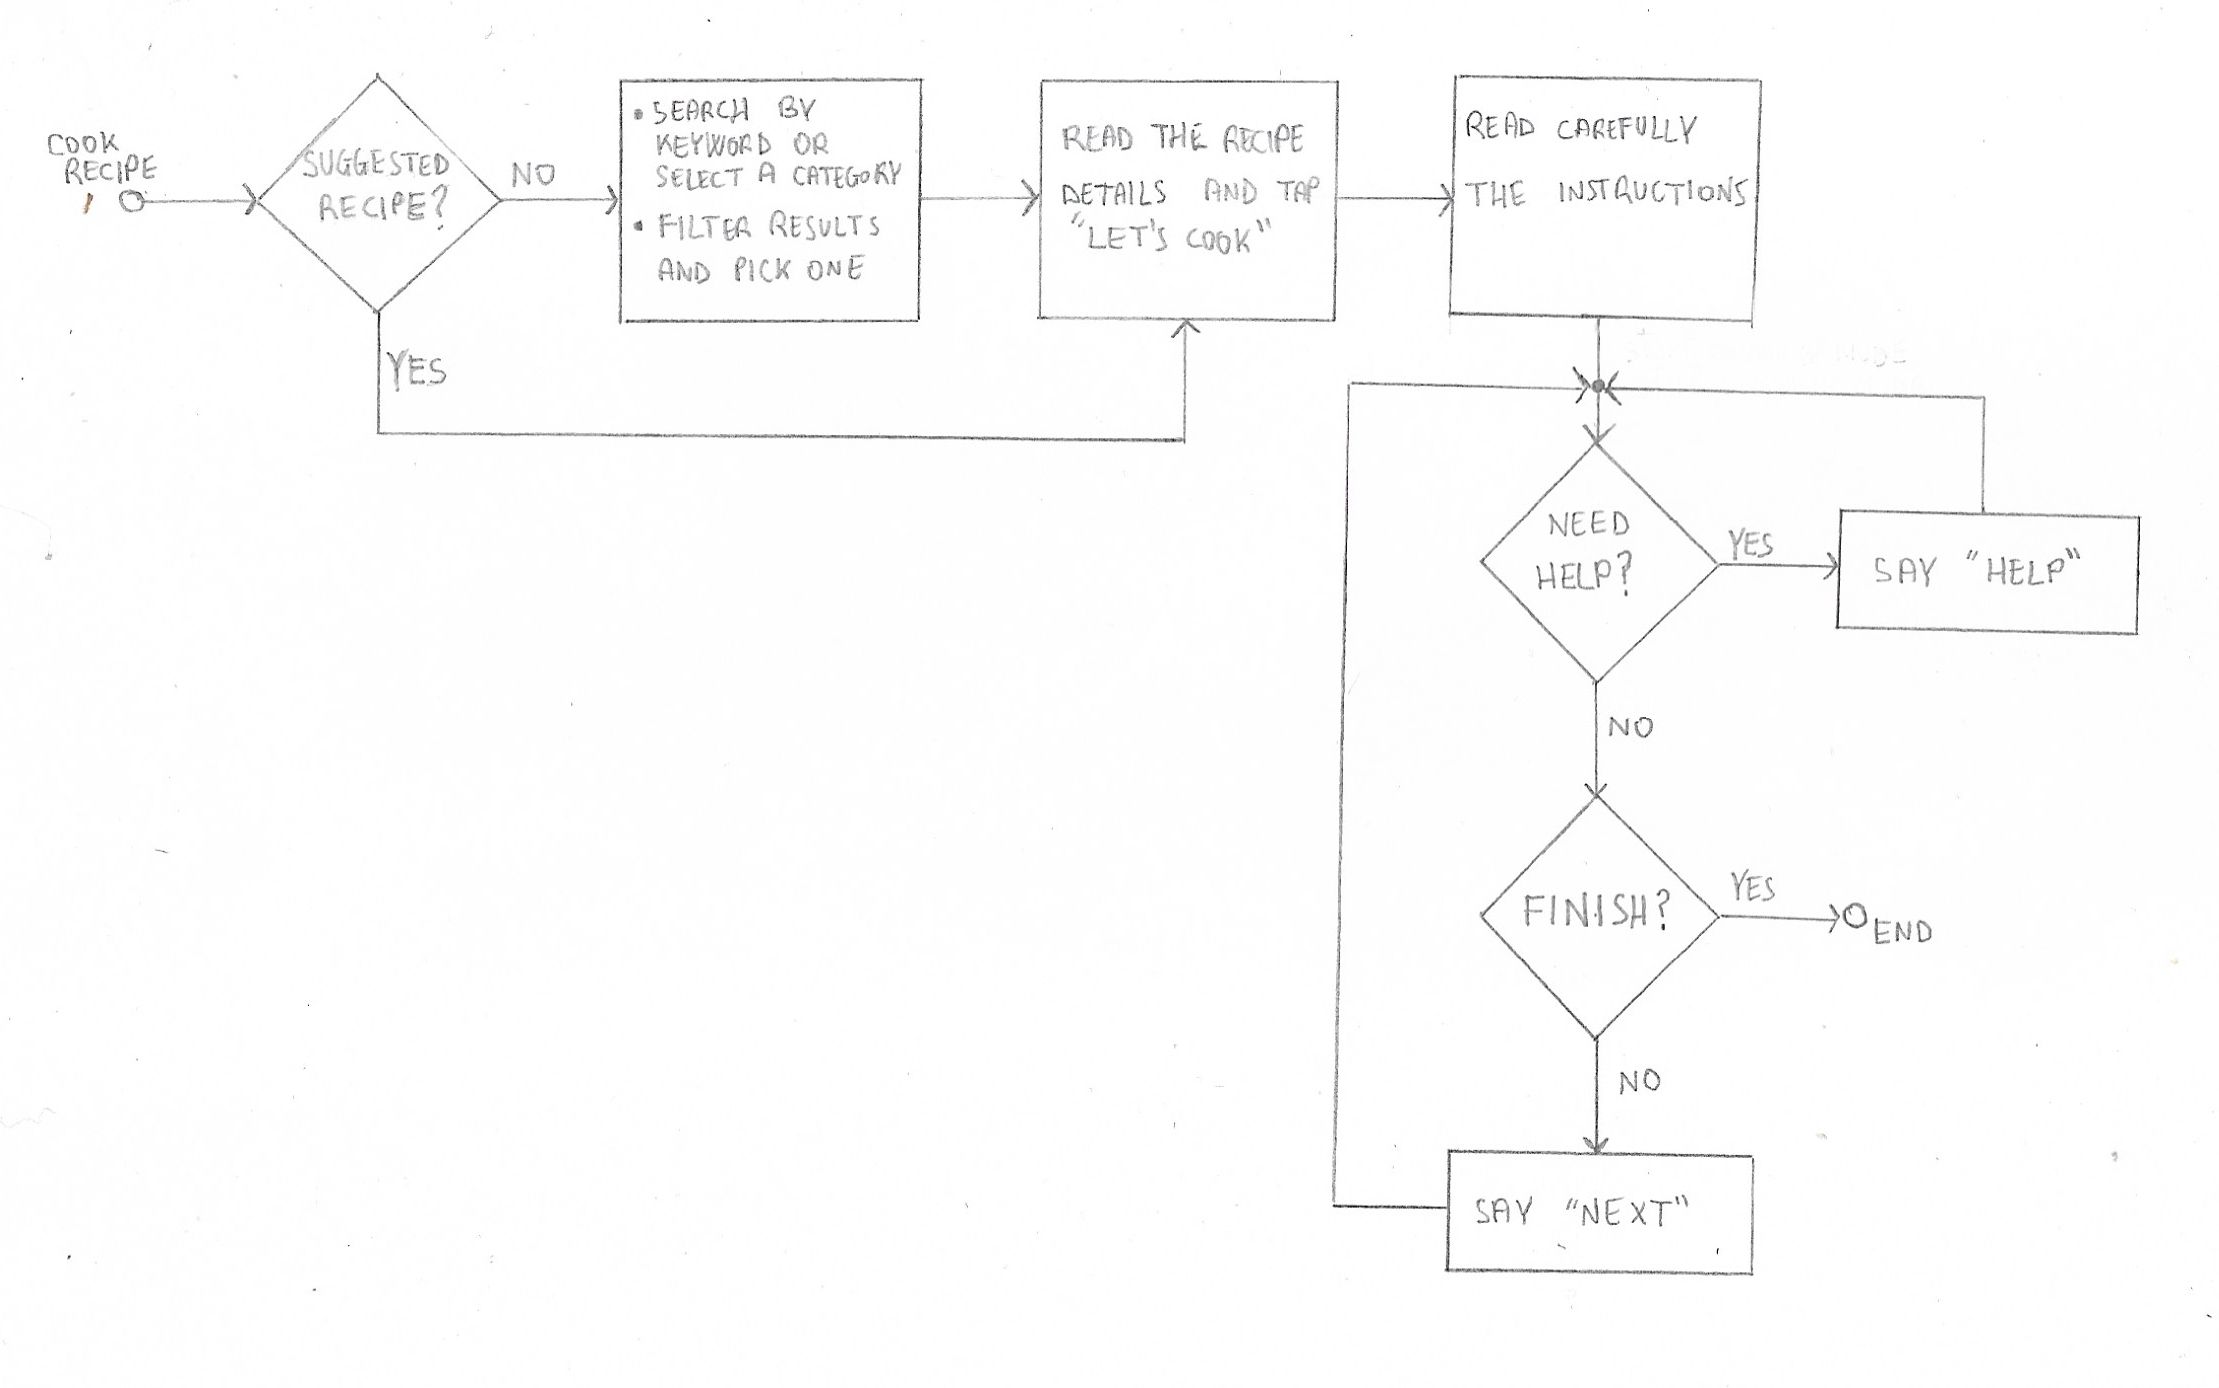 COOK
RECIPE
SUGGESTED
RECIPE?
NO
YES
• SEARCH BY
KEYWORD OR
SELECT A CATEGORY
• FILTER RESULTS
AND PICK ONE
READ THE RECIPE
DETAILS AND TAP
"LET'S COOK"
READ CAREFULLY
THE INSTRUCTIONS
NEED
HELP?
YES
SAY "HELP"
NO
FINISH?
YES
END
NO
SAY "NEXT"